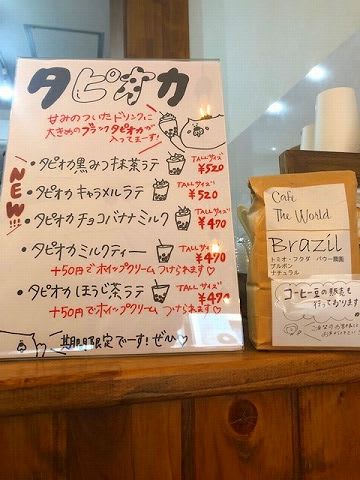 タピオカ
甘みのついたドリンクに
大きめのブラックタピオカが
入ってまーす!
NEW!!!
・タピオカ黒みつ抹茶ラテ TALLサイズ ¥520
・タピオカキャラメルラテ TALLサイズ ¥520
・タピオカチョコバナナミルク TALLサイズ ¥470
・タピオカミルクティー TALLサイズ ¥470
+50円でホイップクリームつけられます♡
・タピオカほうじ茶ラテ TALLサイズ ¥470
+50円でホイップクリームつけられます♡
期間限定でーす!ぜひ♡
Cafe
The World
Brazil
トミオ・フクダ バウー農園
ブルボン
ナチュラル
コーヒー豆の販売も
行っております